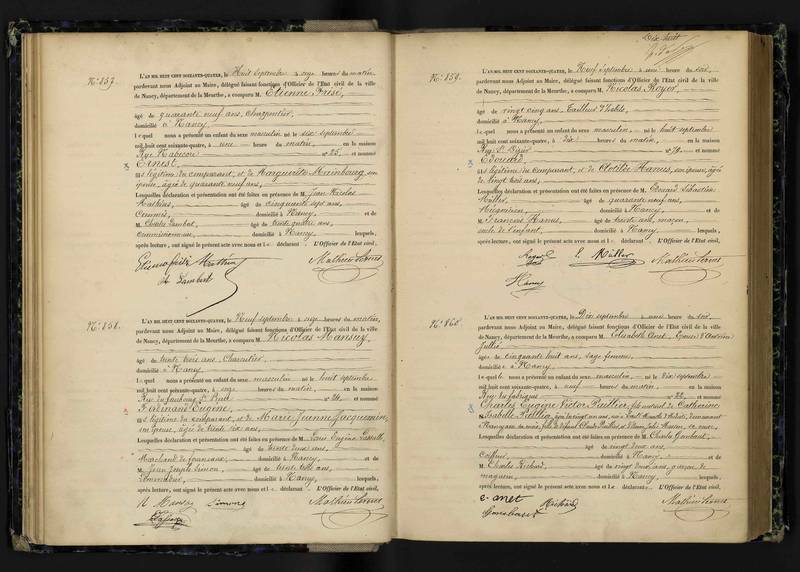 N.° 857.
L'AN MIL HUIT CENT SOIXANTE-QUATRE, le Huit septembre à onze heures du matin,
pardevant nous Adjoint au Maire, délégué faisant fonctions d'Officier de l'Etat civil de la ville
de Nancy, département de la Meurthe, a comparu M. Etienne
âgé de quarante neuf ans, Charpentier,
domicilié à Nancy
lequel nous a présenté un enfant du sexe masculin né le six septembre
mil huit cent soixante-quatre, à une heure du matin, en la maison
Rue n° 25, et nommé
Ernest,
fils légitime du comparant, et de Marguerite son
épouse, âgée de quarante neuf ans,
Lesquelles déclaration et présentation ont été faites en présence de M. Jean Nicolas
Mathieu, âgé de cinquante sept ans,
Commis, domicilié à Nancy, et de
M. Charles Lambert, âgé de trente quatre ans,
commissionnaire, domicilié à Nancy, lesquels,
après lecture, ont signé le présent acte avec nous et le déclarant. L'Officier de l'Etat civil,
Lambert
N.° 858.
L'AN MIL HUIT CENT SOIXANTE-QUATRE, le Neuf septembre à onze heures du matin,
pardevant nous Adjoint au Maire, délégué faisant fonctions d'Officier de l'Etat civil de la ville
de Nancy, département de la Meurthe, a comparu M. Nicolas Mansuy,
âgé de trente trois ans, Charcutier,
domicilié à Nancy
lequel nous a présenté un enfant du sexe masculin né le huit septembre
mil huit cent soixante-quatre, à onze heures du matin, en la maison
Rue du faubourg St n° 24, et nommé
Ferdinand Eugène,
fils légitime du comparant, et de Marie Jeanne Jacquemin,
son épouse, âgée de trente six ans,
Lesquelles déclaration et présentation ont été faites en présence de M. Louis Eugène
âgé de trente deux ans,
Marchand de domicilié à Nancy et de
M. Jean Joseph Simon, âgé de trente ans,
domicilié à Nancy, lesquels,
après lecture, ont signé le présent acte avec nous et le déclarant. L'Officier de l'Etat civil,
N. Mansuy Simon
Dix huit
N.° 859.
L'AN MIL HUIT CENT SOIXANTE-QUATRE, le Neuf septembre à une heure du soir,
pardevant nous Adjoint au Maire, délégué faisant fonctions d'Officier de l'Etat civil de la ville
de Nancy, département de la Meurthe, a comparu M. Nicolas Royer,
âgé de vingt cinq ans, Tailleur d'habits,
domicilié à Nancy,
lequel nous a présenté un enfant du sexe masculin, né le huit septembre
mil huit cent soixante-quatre, à dix heures du matin, en la maison
Rue St Dizier n° 79, et nommé
Edouard,
fils légitime du comparant, et de Clotilde Hanus, son épouse, âgée
de vingt trois ans,
Lesquelles déclaration et présentation ont été faites en présence de M. Edouard Sébastien
Müller, âgé de quarante neuf ans,
domicilié à Nancy, et de
M. François Hanus, âgé de trente ans, maçon,
oncle de l'enfant, domicilié à Nancy, lesquels,
après lecture, ont signé le présent acte avec nous et le déclarant. L'Officier de l'Etat civil,
Royer Müller
Hanus
N.° 860.
L'AN MIL HUIT CENT SOIXANTE-QUATRE, le Dix septembre à une heure du soir,
pardevant nous Adjoint au Maire, délégué faisant fonctions d'Officier de l'Etat civil de la ville
de Nancy, département de la Meurthe, a comparu M. Elisabeth Anet, Epouse d'Antoine
âgée de cinquante huit ans, sage femme,
domiciliée à Nancy,
laquelle nous a présenté un enfant du sexe masculin, né le Dix septembre
mil huit cent soixante-quatre, à neuf heures du matin, en la maison
Rue des fabriques n° 22, et nommé
Charles Eugène Victor fils naturel de Catherine
Isabelle
Lesquelles déclaration et présentation ont été faites en présence de M. Charles
âgé de vingt deux ans,
Coiffeur, domicilié à Nancy, et de
M. Charles Richard, âgé de vingt deux ans, garçon de
magasin, domicilié à Nancy, lesquels,
après lecture, ont signé le présent acte avec nous et le déclarant. L'Officier de l'Etat civil,
e. anet Richard